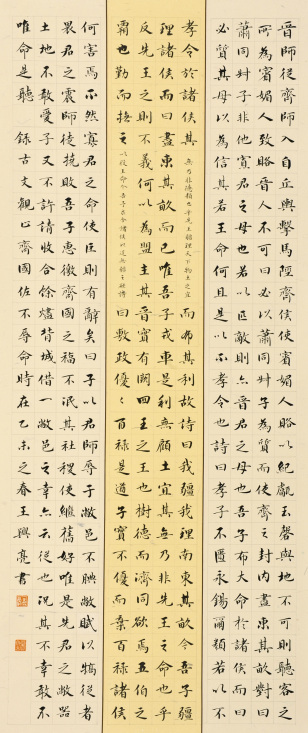 晉師從齊師入自丘輿擊馬陘齊侯使賓媚人賂以紀甗玉磬與地不可則聽客之
所為賓媚人致賂晉人不可曰必以蕭同叔子為質而使齊之封內盡東其畝對曰
蕭同叔子非他寡君之母也若以匹敵則亦晉君之母也吾子布大命於諸侯而曰
必質其母以為信其若王命何且是以不孝令也詩曰孝子不匱永錫爾類若以不
孝令於諸侯其無乃非德類也乎先王疆理天下物土之宜而布其利故詩曰我疆我理南東其畝今吾子疆
理諸侯而曰盡東其畝而已唯吾子戎車是利無顧土宜其無乃非先王之命也乎
反先王之則不義何以為盟主其晉實有闕四王之王也樹德而濟同欲焉五伯之
霸也勤而撫之以役王命今吾子求合諸侯以逞無疆之欲詩曰敷政優優百祿是遒子實不優而棄百祿諸侯
何害焉不然寡君之命使臣則有辭矣曰子以君師辱于敝邑不腆敝賦以犒從者
畏君之震師徒撓敗吾子惠徼齊國之福不泯其社稷使繼舊好唯是先君之敝器
土地不敢愛子又不許請收合餘燼背城借一敝邑之幸亦云從也況其不幸敢不
唯命是聽 錄古文觀止齊國佐不辱命時在乙未之春王興亮書